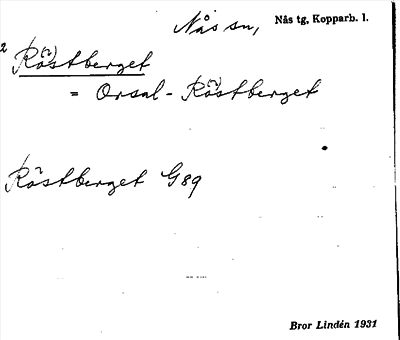 Nås sn, Nås tg, Kopparb. l.
2 Rö(ʔ)stberget
= Orsal - Rö(ʔ)stberget
Röstberget G89
Bror Lindén 1931